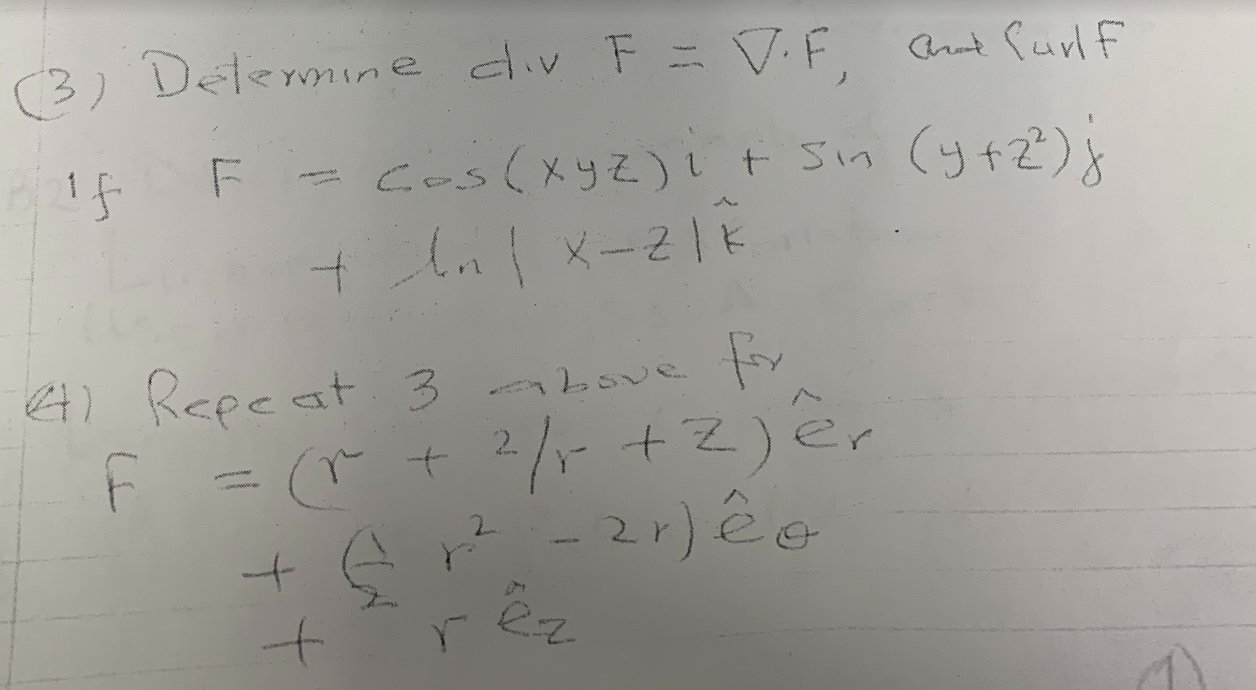 (3) Determine div F = ∇·F, and Curl F
if F = cos(xyz)i + sin (y+z²)j
+ ln|x-z|k̂
(4) Repeat 3 above for
F = (r + 2/r + z) êr
+ (1/2 r² - 2r) êθ
+ r êz